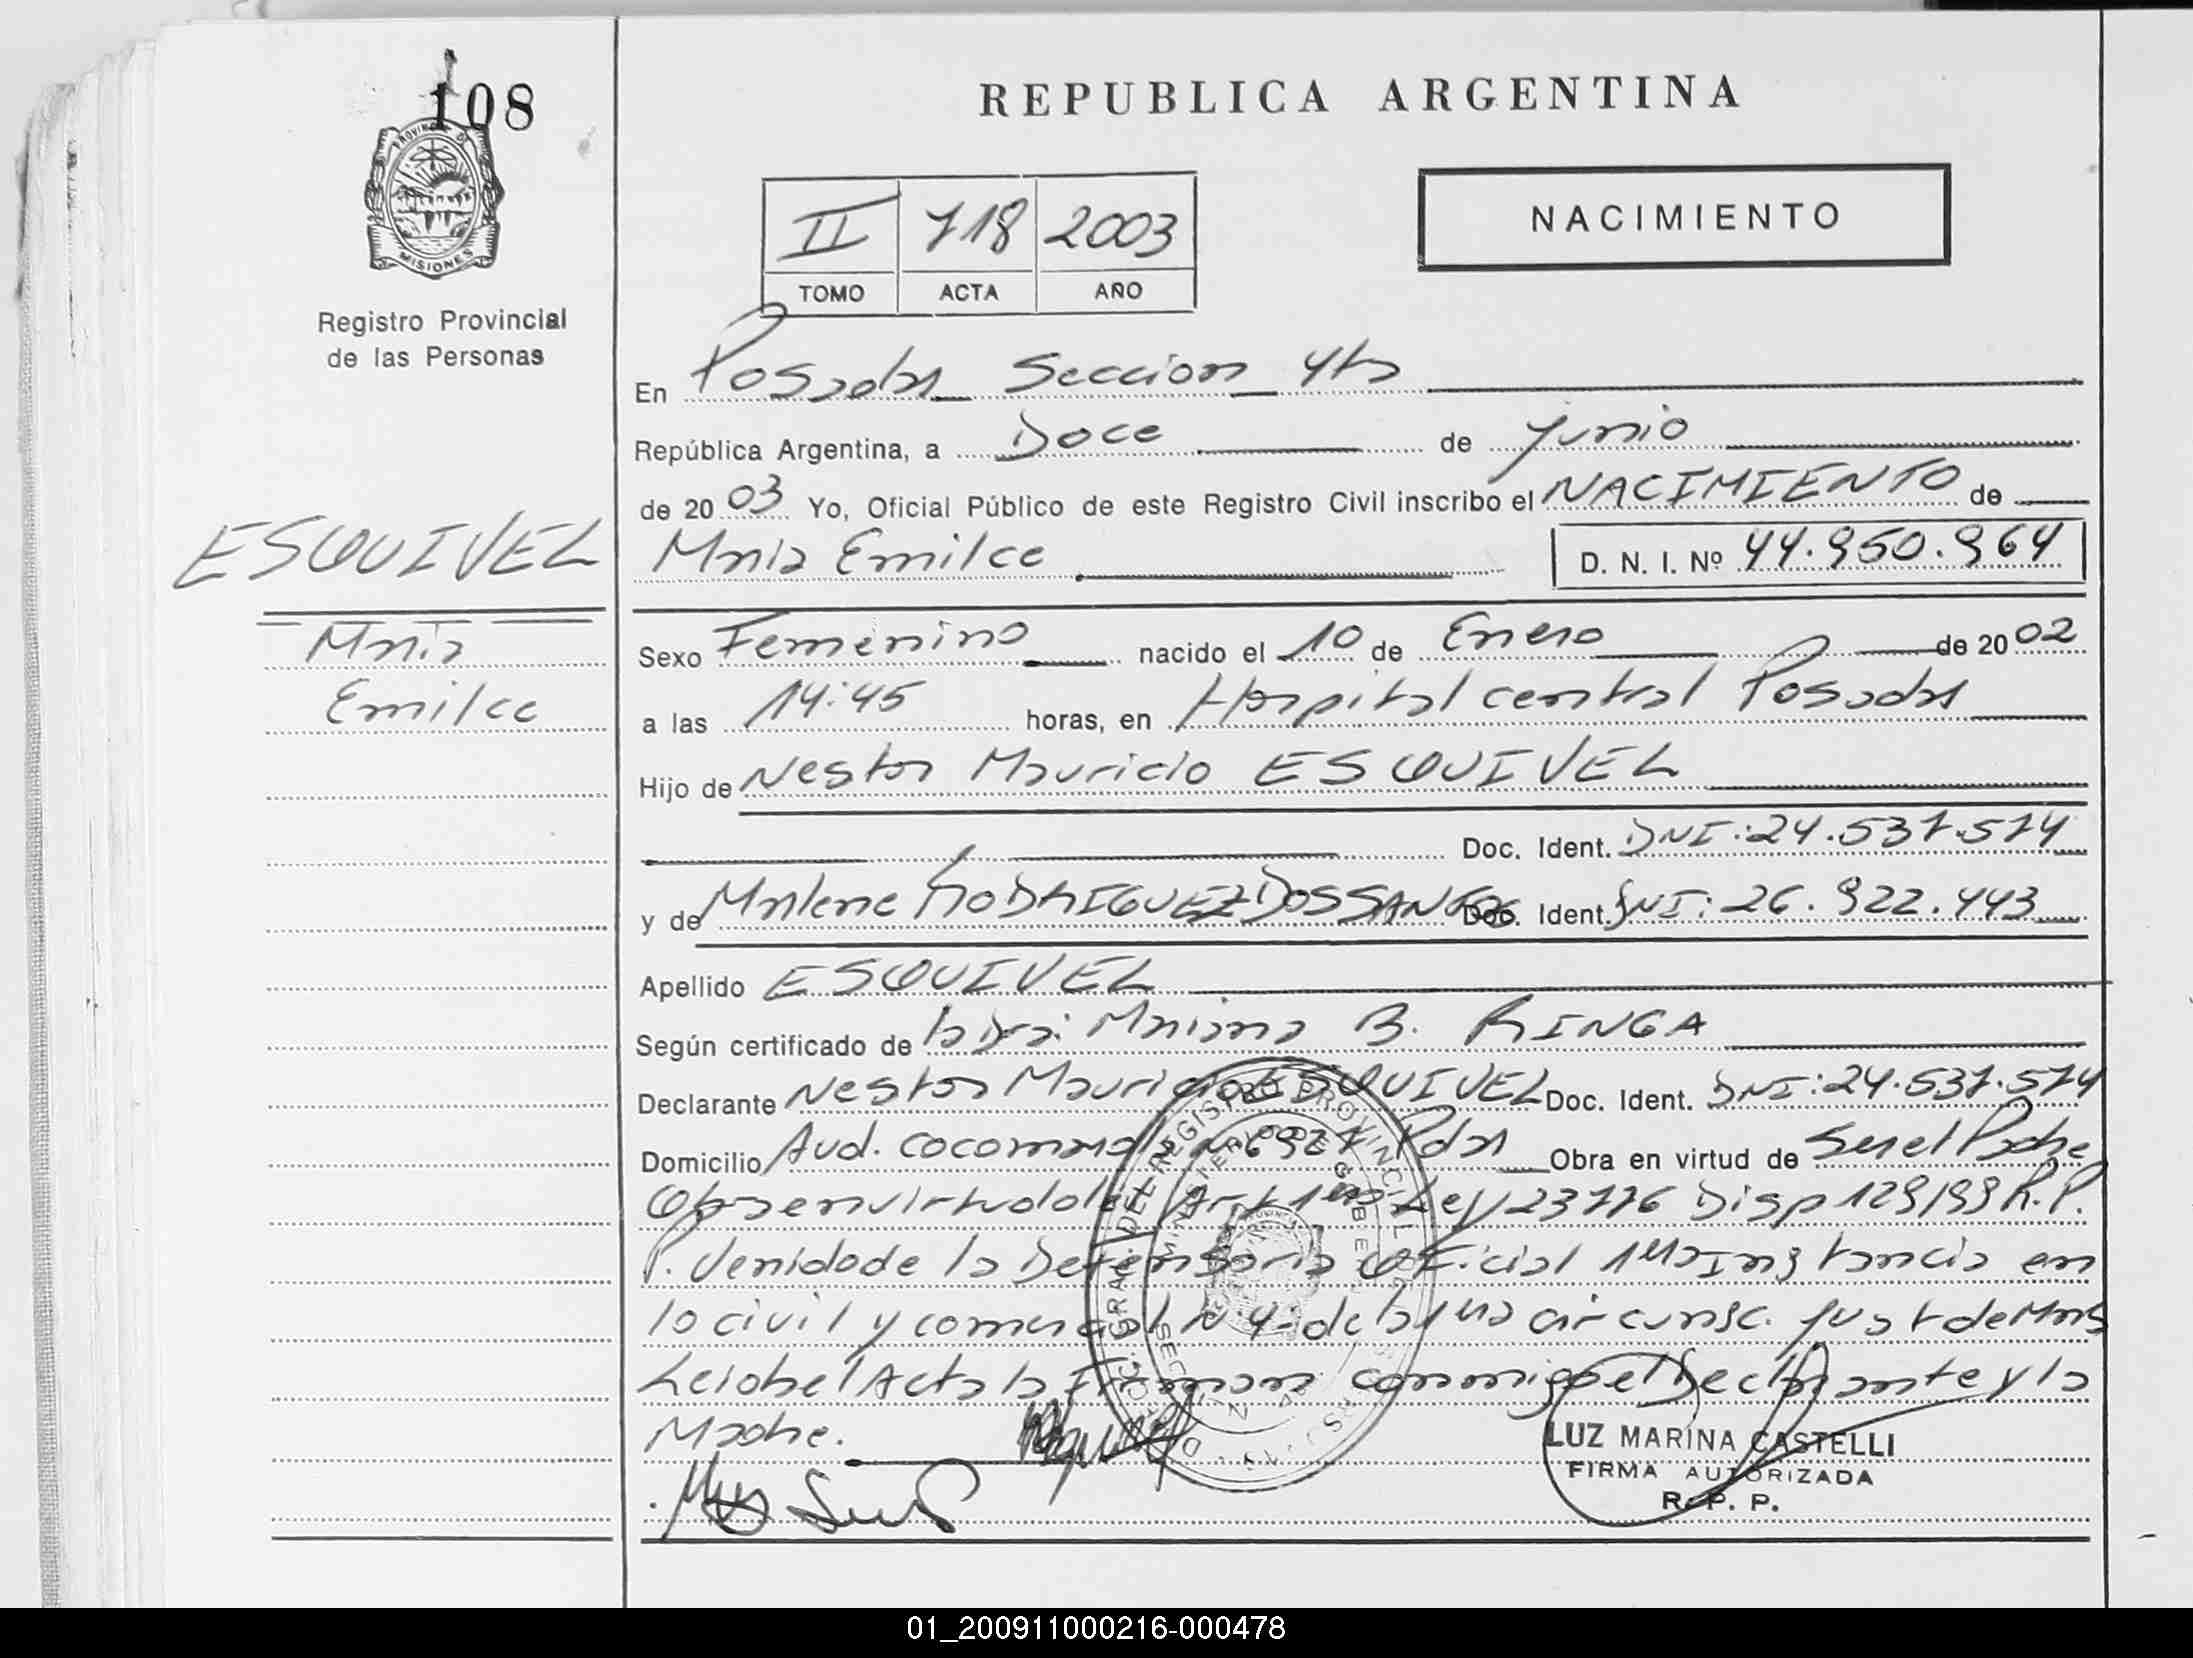 108
PROVINCIA DE
MISIONES
Registro Provincial
de las Personas
REPUBLICA ARGENTINA
NACIMIENTO
II 718 2003
TOMO ACTA AÑO
En Posadas Seccion 4ta
República Argentina, a Doce de Junio
de 2003 Yo, Oficial Público de este Registro Civil inscribo el NACIMIENTO de
ESQUIVEL
Maria
Emilce
Maria Emilce D. N. I. Nº 44.950.964
Sexo Femenino nacido el 10 de Enero de 2002
a las 14:45 horas, en Hospital central Posadas
Hijo de Nestor Mauricio ESQUIVEL
Doc. Ident. DNI: 24.537.574
y de Marlene RODRIGUEZ DOS SANTOS Doc. Ident. DNI: 26.922.443
Apellido ESQUIVEL
Según certificado de la Dra: Mariana B. RINGA
Declarante Nestor Mauricio ESQUIVEL Doc. Ident. DNI: 24.537.574
Domicilio Aud. Pdas Obra en virtud de Ser el Padre
Obra en virtud del Art 1ero Ley 23776 Disp 129/99 R.P.
P. Venida de la Defensoria Oficial 1era Instancia en
lo civil y comercial N 4 de la 1era circunsc. Just de Mnes
Leida el Acta la Firman conmigo el Declarante y la
Madre.
LUZ MARINA CASTELLI
FIRMA AUTORIZADA
R. P. P.
01_200911000216-000478